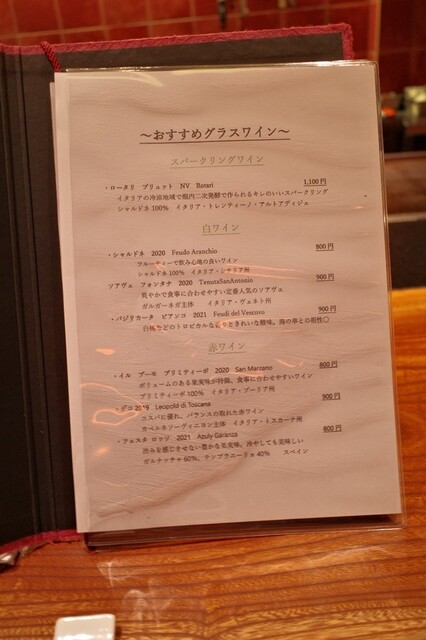 ～おすすめグラスワイン～
スパークリングワイン
・ロータリ ブリュット NV Rotari 1,100円
イタリアの冷涼地域で瓶内二次発酵で作られるキレのいいスパークリング
シャルドネ 100% イタリア・トレンティーノ・アルトアディジェ
白ワイン
・シャルドネ 2020 Feudo Arancho 800円
フルーティーで飲み心地の良いワイン
シャルドネ 100% イタリア・シチリア州
ソアヴェ フォンタナ 2020 TenutaSantAntonio 900円
爽やかで食事に合わせやすい定番人気のソアヴェ
ガルガーネガ主体 イタリア・ヴェネト州
・バジリカータ ビアンコ 2021 Feudi del Vescovo 900円
白桃などのトロピカルな香りときれいな酸味。海の幸との相性〇
赤ワイン
・イル プーモ プリミティーボ 2020 San Marzano 800円
ボリュームのある果実味が特徴、食事に合わせやすいワイン
プリミティーボ 100% イタリア・プーリア州
・デコ 2019 Leopold di Toscana 900円
コスパに優れ、バランスの取れた赤ワイン
カベルネソーヴィニヨン主体 イタリア・トスカーナ州
・フェスタ ロッソ 2021 Azuly Garanza 800円
渋みを感じさせない豊かな果実味。冷やしても美味しい
ガルナッチャ 60%、テンプラニーリョ 40% スペイン